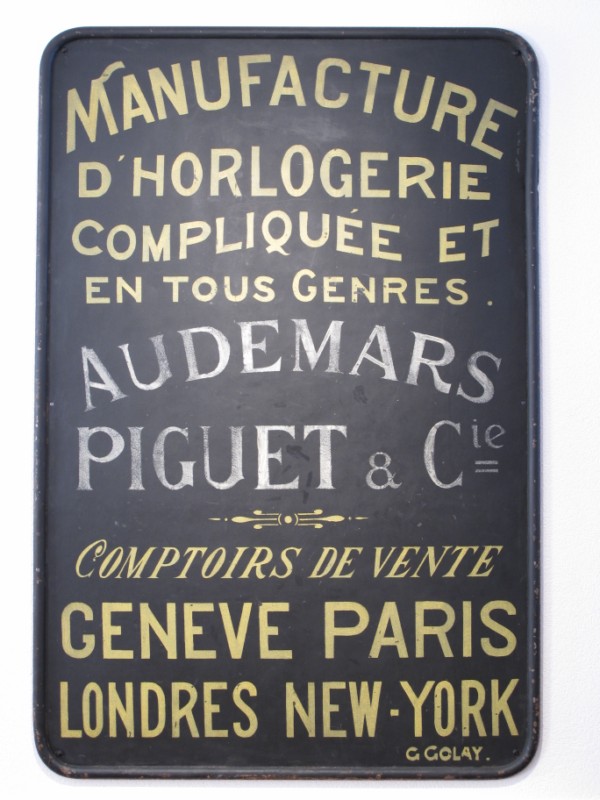 MANUFACTURE
D'HORLOGERIE
COMPLIQUÉE ET
EN TOUS GENRES.
AUDEMARS
PIGUET & Cie
COMPTOIRS DE VENTE
GENEVE PARIS
LONDRES NEW-YORK
G GOLAY.